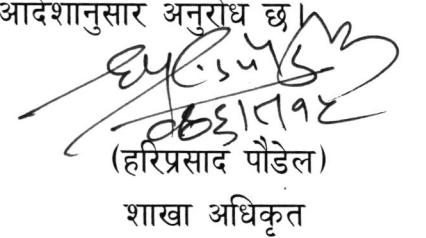 आदेशानुसार अनुरोध छ।
(हरिप्रसाद पौडेल)
शाखा अधिकृत